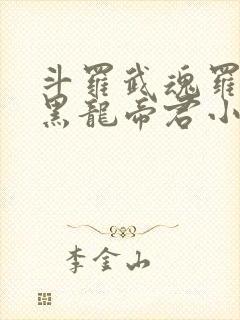 斗羅武魂羅
黑龍帝君小
李金山